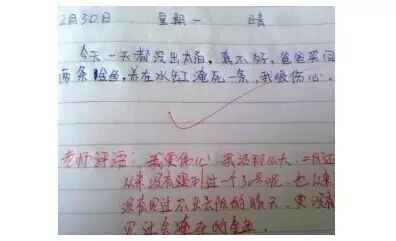 2月30日 星期一 晴
今天一天都没出太阳,真不好,爸爸买回
两条金鱼,养在水缸淹死一条,我很伤心。
老师评语:我更伤心!我活那么大,二月还
从来没有遇到过一个30号呢,也从来
没有见过不出太阳的晴天,更没有
见过会淹死的金鱼